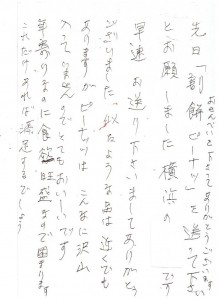 おせんべいを下さってありがとうございます
先日「割餅ピーナツ」を送って下さい
とお願しました横浜の　です
早速お送り下さいましてありがとう
ございました 似たような品は近くでも
ありますがピーナツは こんなに沢山
入っていませんのでとてもおいしいです
年寄りのまのに食欲旺盛なので困ります
これだけあれば満足するでしょう